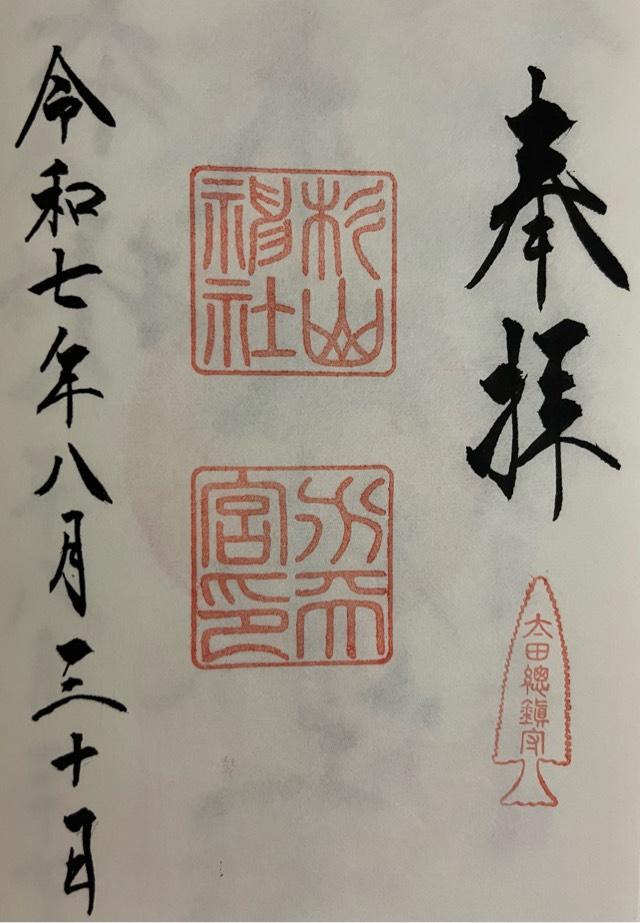 奉拝
太田總鎮守
杉山
神社
水天
宮印
令和七年八月三十日